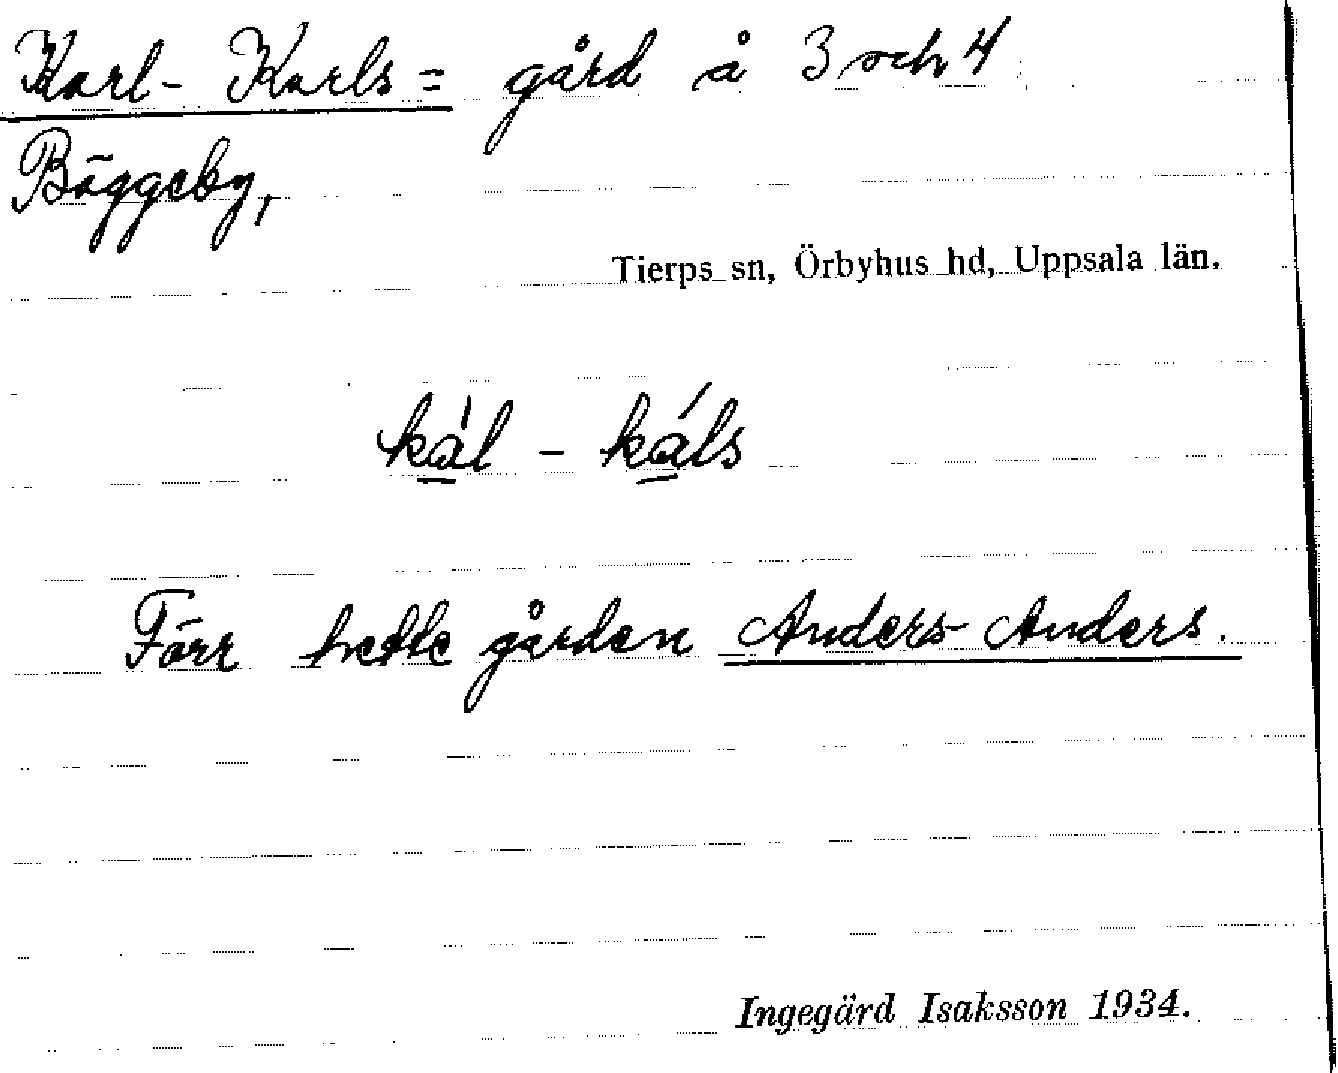 Karl-Karls= gård å 3 och 4
Böggeby,
Tierps sn, Örbyhus hd, Uppsala län.
kàl - káls
Förr hette gården Anders-Anders.
Ingegärd Isaksson 1934.